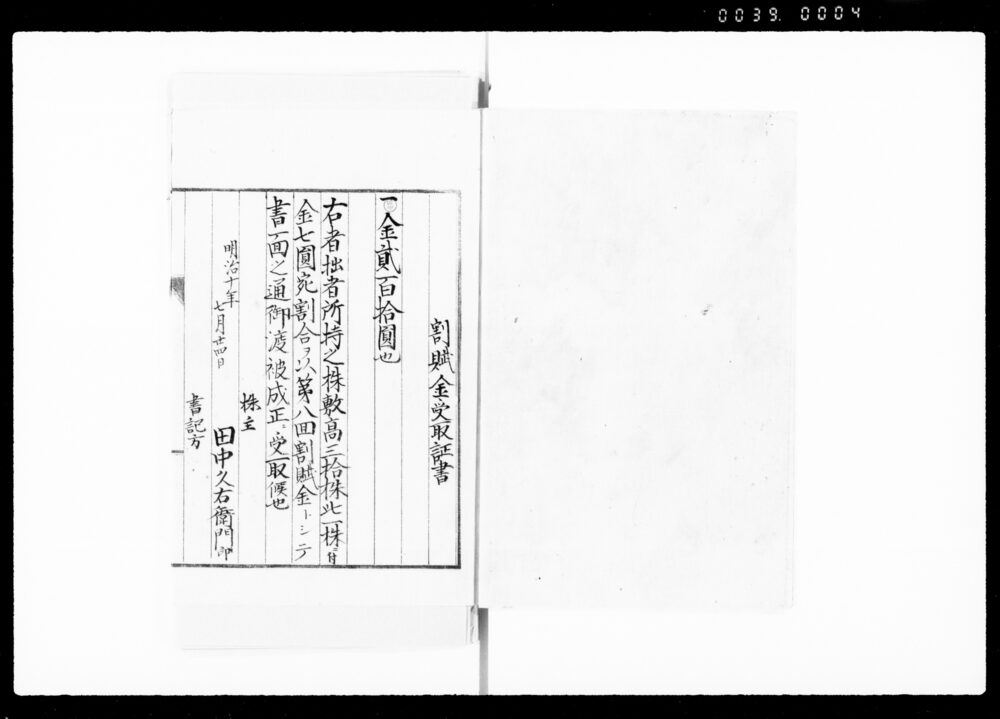 0039. 0004
割賦金受取証書
一金貳百拾圓也
右者拙者所持之株敷高三拾株此一株ニ付
金七圓宛割合ヲ以第八回割賦金トシテ
書面之通御渡被成正ニ受取候也
明治十年
七月廿四日
株主
田中久右衛門印
書記方